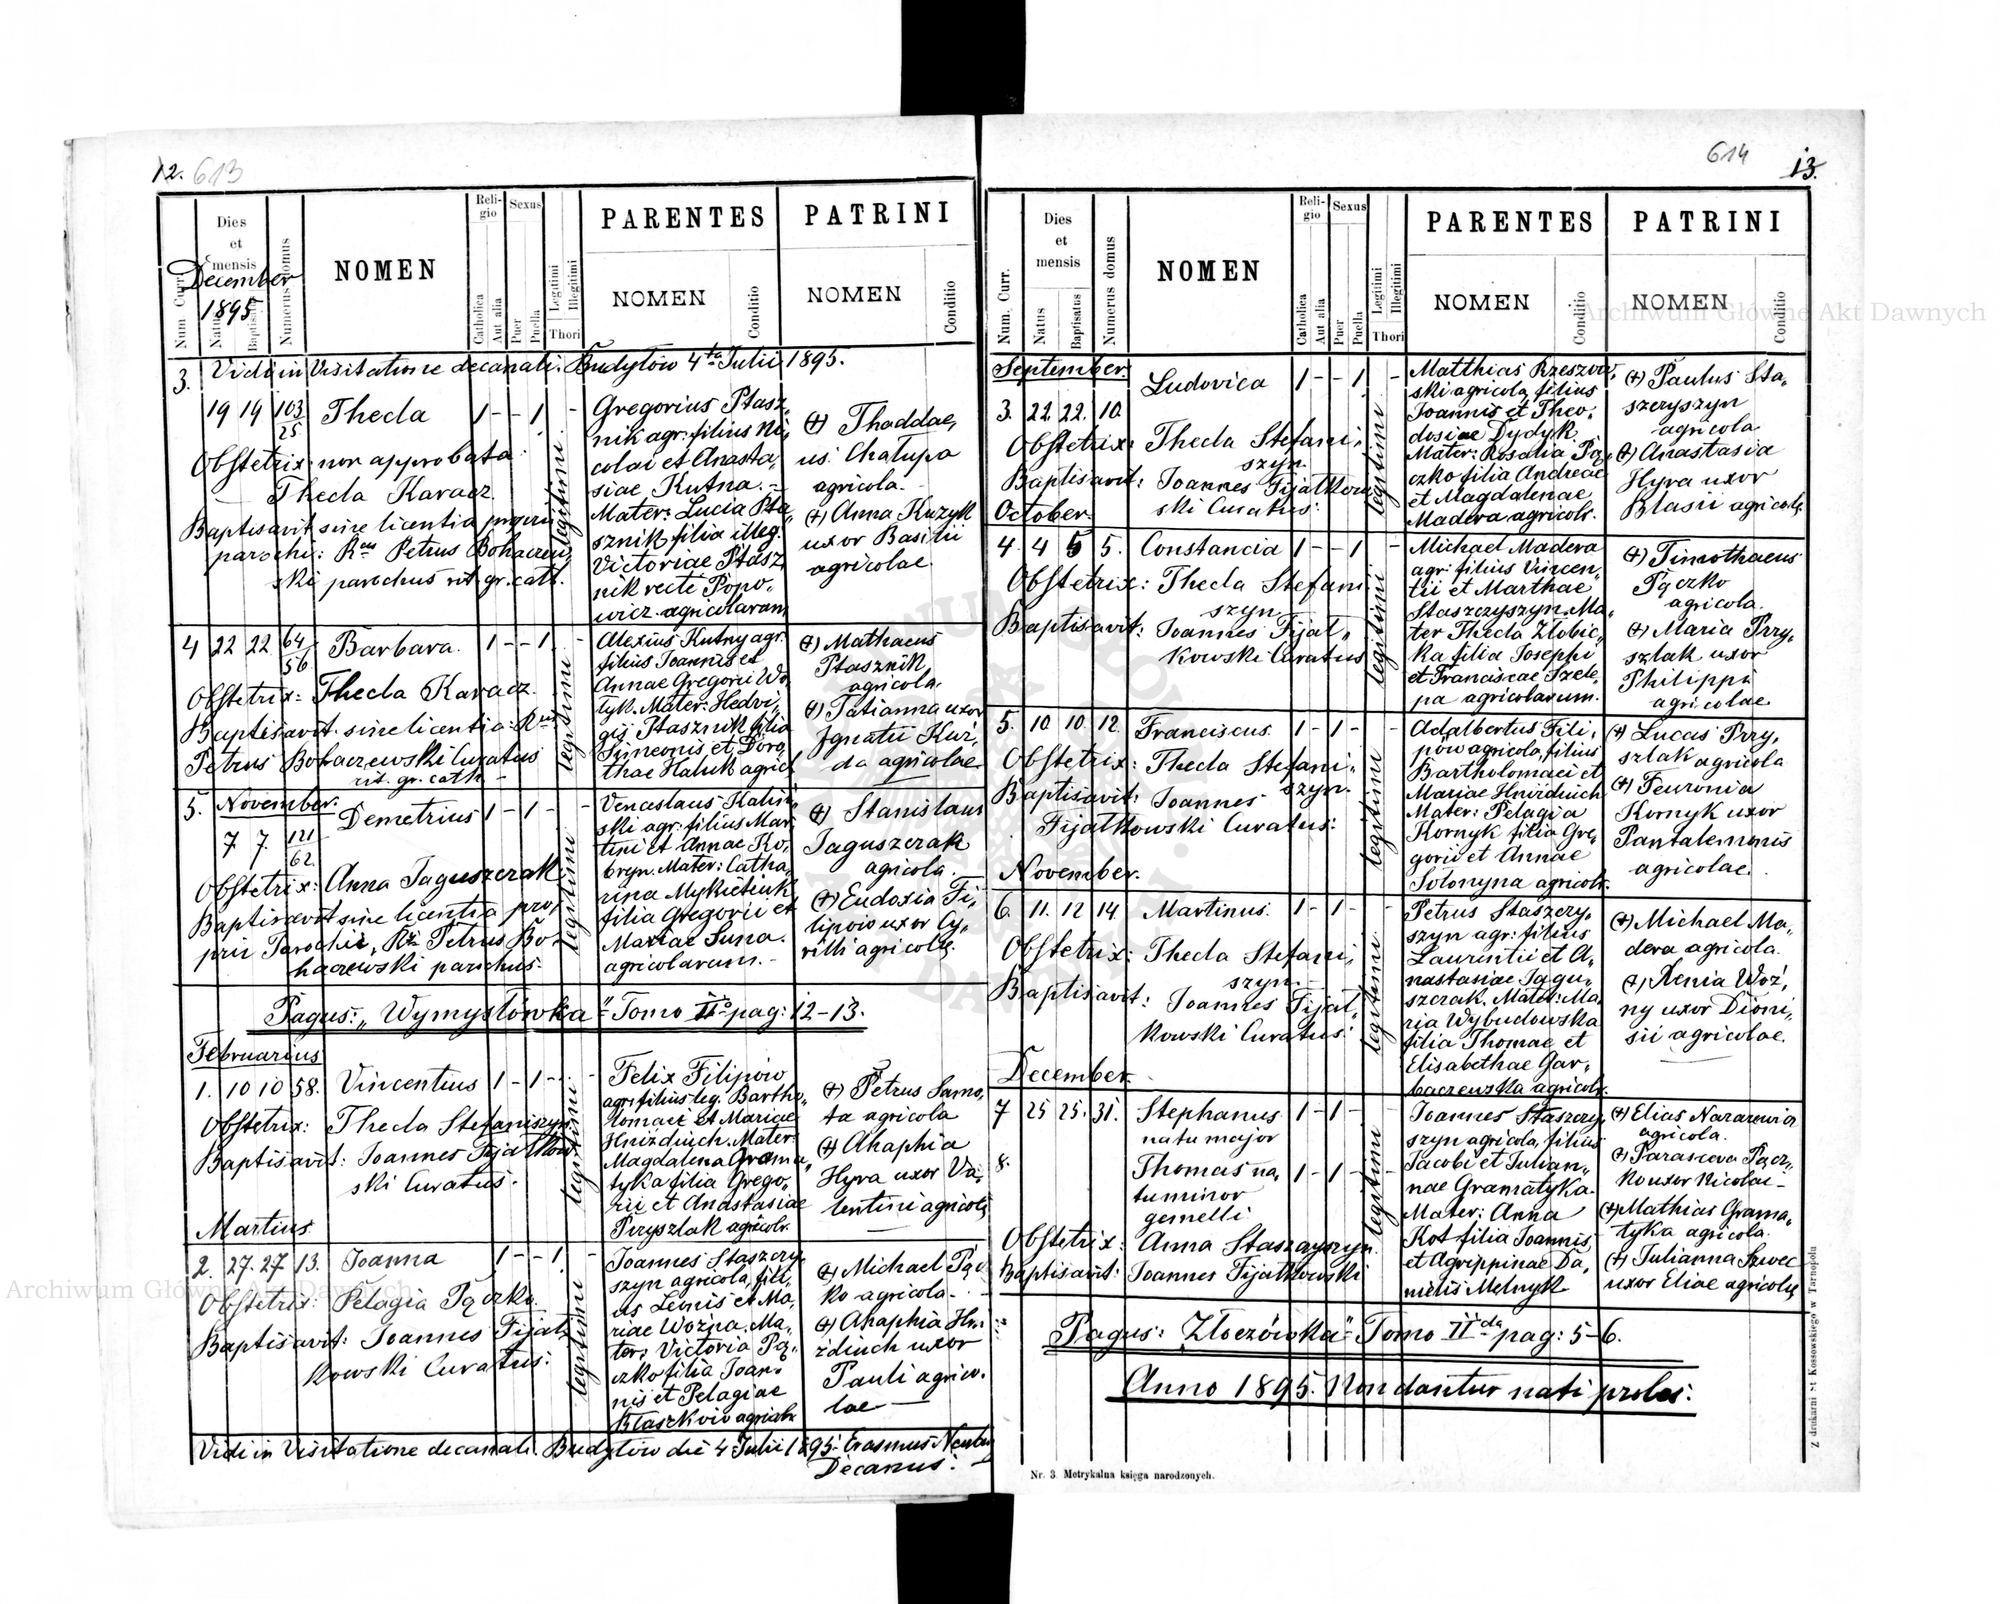 12. 613
Num Curr.
Dies
et
mensis
December
1895
Natus
Baptisatus
Numerus domus
NOMEN
Religio
Catholica
Aut alia
Sexus
Puer
Puella
Legitimi
Illegitimi
Thori
PARENTES
NOMEN
Conditio
PATRINI
NOMEN
Conditio
3. Vidi in Visitatione decanali. Budyłów 4ta Julii 1895.
19 19 103/25 Thecla 1 - - 1 -
Obstetrix: non approbata:
Thecla Karacz.
Baptisavit sine licentia proprii
parochi: Rus Petrus Bohaczew,
ski parochus rit. gr. cath.
legitimi
Gregorius Ptasz,
nik agr: filius Ni,
colai et Anasta,
siae Kutna. -
Mater: Lucia Pta,
sznik filia illeg.
Victoriae Ptasz,
nik recte Popo,
wicz agricolarum
(+) Thaddae,
us Chałupa
agricola. -
(+) Anna Kuzyk
uxor Basilii
agricolae.
4 22 22 64/56 Barbara. 1 - - 1 -
Obstetrix: Thecla Karacz.
Baptisavit sine licentia: Rus
Petrus Bohaczewski Curatus
rit. gr. cath. -
legitimi
Alexius Kutny agr.
filius Joannis et
Annae Gregorii Wo,
tyk. Mater: Hedvi,
gis Ptasznik filia
Simeonis et Doro,
thae Haluk agricol.
(+) Mathaeus
Ptasznik,
agricola.
(+) Tatianna uxor
Ignatii Kur,
da agricolae
5. November.
7. 7. 121/62 Demetrius 1 - 1 - -
Obstetrix: Anna Jaguszczak
Baptisavit sine licentia pro,
prii Parochi, Rus Petrus Bo,
haczewski parochus.
legitimi
Venceslaus Kalin,
ski agr: filius Mar,
tini et Annae Ko,
bryn. Mater: Catha,
rina Mykietiuk
filia Gregorii et
Mariae Suna.
agricolarum. -
(+) Stanislaus
Jaguszczak
agricola.
(+) Eudoxia Fi,
lipow uxor Cy,
rilli agricolae.
Pagus: „Wymysłówka" Tomo IIo pag: 12-13.
Februarius
1. 10 10 58. Vincentius 1 - 1 - -
Obstetrix: Thecla Stefaniszyn
Baptisavit: Joannes Fijałkow,
ski Curatus.
legitimi
Felix Filipow
agr: filius leg. Bartho,
lomaei et Mariae
Hniżdiuch. Mater:
Magdalena Grama,
tyka filia Grego,
rii et Anastasiae
Przyszlak agricolr.
(+) Petrus Samo,
ta agricola
(+) Ahaphia
Hyra uxor Va,
lentini agricolae
Martius
2. 27. 27 13. Joanna 1 - - 1 -
Obstetrix: Pelagia Pączko
Baptisavit: Joannes Fijał,
kowski Curatus:
legitimi
Joannes Staszczy,
szyn agricola, fili,
us Leonis et Ma,
riae Woźna. Ma,
ter: Victoria Pą,
czko filia Joan,
nis et Pelagiae
Błaszkow agricolr.
(+) Michael Pącz
ko agricola. -
(+) Ahaphia Hni
żdiuch uxor
Pauli agrico,
lae
Vidi in Visitatione decanali. Budyłów die 4 Julii 1895. Erasmus
Decanus.
614 13.
Num. Curr.
Dies
et
mensis
Natus
Baptisatus
Numerus domus
NOMEN
Religio
Catholica
Aut alia
Sexus
Puer
Puella
Legitimi
Illegitimi
Thori
PARENTES
NOMEN
Conditio
PATRINI
NOMEN
Conditio
September.
3. 22. 22. 10. Ludovica 1 - - 1 -
Obstetrix: Thecla Stefani,
szyn.
Baptisavit: Joannes Fijałkow
ski Curatus.
legitimi
Matthias Rzeszow,
ski agricola, filius
Joannis et Theo,
dosiae Dydyk.
Mater: Rosalia Pą
czko filia Andreae
et Magdalenae
Madera agricolr.
(+) Paulus Sta,
szczyszyn
agricola
(+) Anastasia
Hyra uxor
Blasii agricolae.
October.
4. 4 5 5. Constancia 1 - - 1 -
Obstetrix: Thecla Stefani
szyn
Baptisavit: Joannes Fijał,
kowski Curatus
legitimi
Michael Madera
agr: filius Vincen,
tii et Marthae
Staszczyszyn. Ma,
ter Thecla Złobic,
ka filia Josephi
et Franciscae Szele,
pa agricolarum.
(+) Timothaeus
Pączko
agricola.
(+) Maria Przy,
szlak uxor
Philippi
agricolae
5. 10 10. 12. Franciscus. 1 - 1 - -
Obstetrix: Thecla Stefani,
szyn.
Baptisavit: Joannes
Fijałkowski Curatus:
legitimi
Adalbertus Fili,
pów agricola, filius
Bartholomaei et
Mariae Hniżdiuch
Mater: Pelagia
Kornyk filia Gre,
gorii et Annae
Sołonyna agricolr.
(+) Lucas Przy,
szlak agricola
(+) Feuronia
Kornyk uxor
Pantalemonis
agricolae.
November.
6. 11. 12 14. Martinus. 1 - 1 - -
Obstetrix: Thecla Stefani,
szyn. -
Baptisavit: Joannes Fijał,
kowski Curatus:
legitimi
Petrus Staszczy,
szyn agr: filius
Laurintii et A,
nastasiae Jagu,
szczak. Mater: Ma,
ria Wybudowska
filia Thomae et
Elisabethae Gar,
baczewska agricolr.
(+) Michael Ma,
dera agricola.
(+) Xenia Woź,
ny uxor Dioni,
sii agricolae.
December.
7 25 25. 31. Stephanus 1 - 1 - -
natu major
8. Thomas na, 1 - 1 - -
tu minor
gemelli
Obstetrix: Anna Staszczyszyn.
Baptisavit: Joannes Fijałkowski
legitimi
Joannes Staszczy,
szyn agricola, filius
Jacobi et Julian,
nae Gramatyka.
Mater: Anna
Kot filia Joannis
et Agrippinae Da,
nielis Melnyk
(+) Elias Nazarewicz
agricola.
(+) Parascova Pącz,
ko uxor Nicolai -
(+) Mathias Grama,
tyka agricola.
(+) Julianna Szwec
uxor Eliae agricolae
Pagus: Złoczówka" Tomo IIda pag: 5-6.
Anno 1895. Non dantur nati proles.
Nr. 3. Metrykalna księga narodzonych.
Z drukarni St Kossowskiego w Tarnopolu
Archiwum Główne Akt Dawnych
Archiwum Główne Akt Dawnych